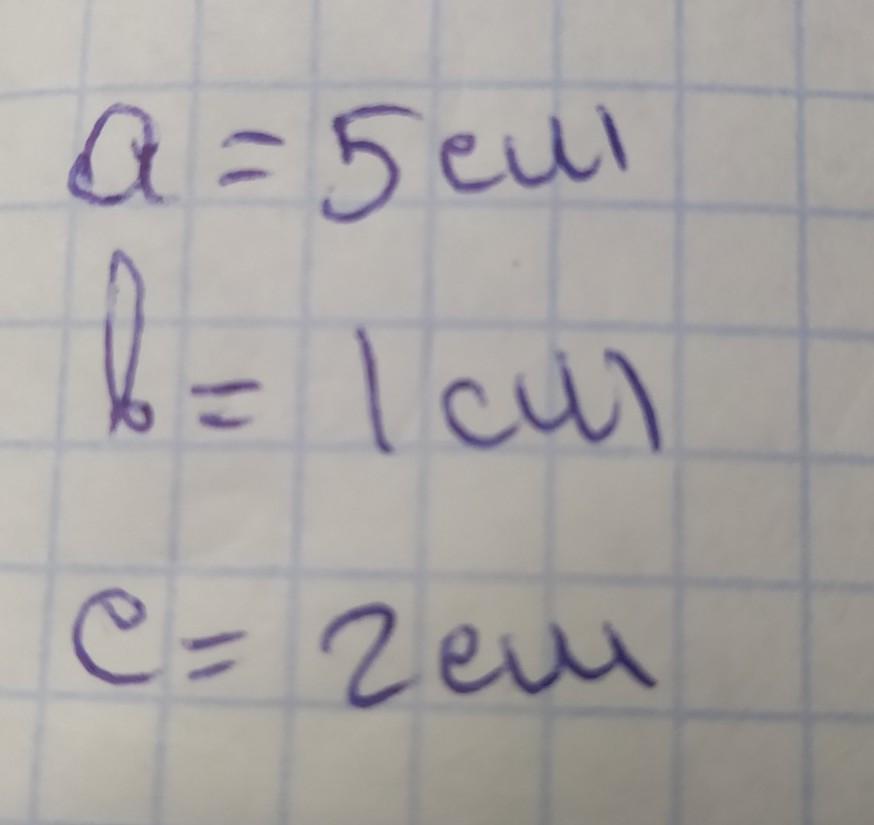 a = 5 см
b = 1 см
c = 2 см